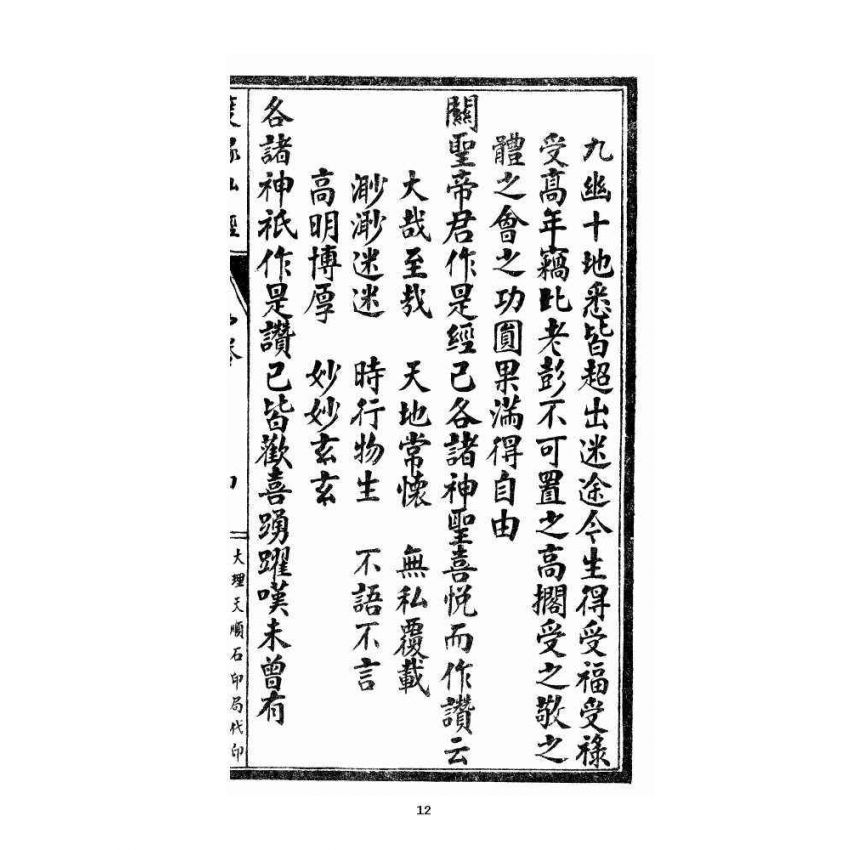 九幽十地悉皆超出迷途今生得受福受祿
受高年竊比老彭不可置之高擱受之敬之
體之會之功圓果滿得自由
關聖帝君作是經已各諸神聖喜悅而作讚云
大哉至哉　天地常懷　無私覆載
渺渺迷迷　時行物生　不語不言
高明博厚　妙妙玄玄
各諸神祇作是讚已皆歡喜踴躍嘆未曾有
大理天順石印局代印
12